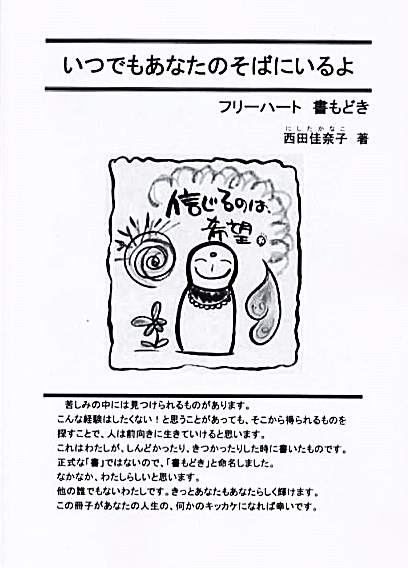 いつでもあなたのそばにいるよ
フリーハート 書もどき
にしたかなこ
西田佳奈子 著
信じるのは、
希望。
苦しみの中には見つけられるものがあります。
こんな経験はしたくない！と思うことがあっても、そこから得られるものを
探すことで、人は前向きに生きていけると思います。
これはわたしが、しんどかったり、きつかったりした時に書いたものです。
正式な「書」ではないので、「書もどき」と命名しました。
なかなか、わたしらしいと思います。
他の誰でもないわたしです。きっとあなたもあなたらしく輝けます。
この冊子があなたの人生の、何かのキッカケになれば幸いです。